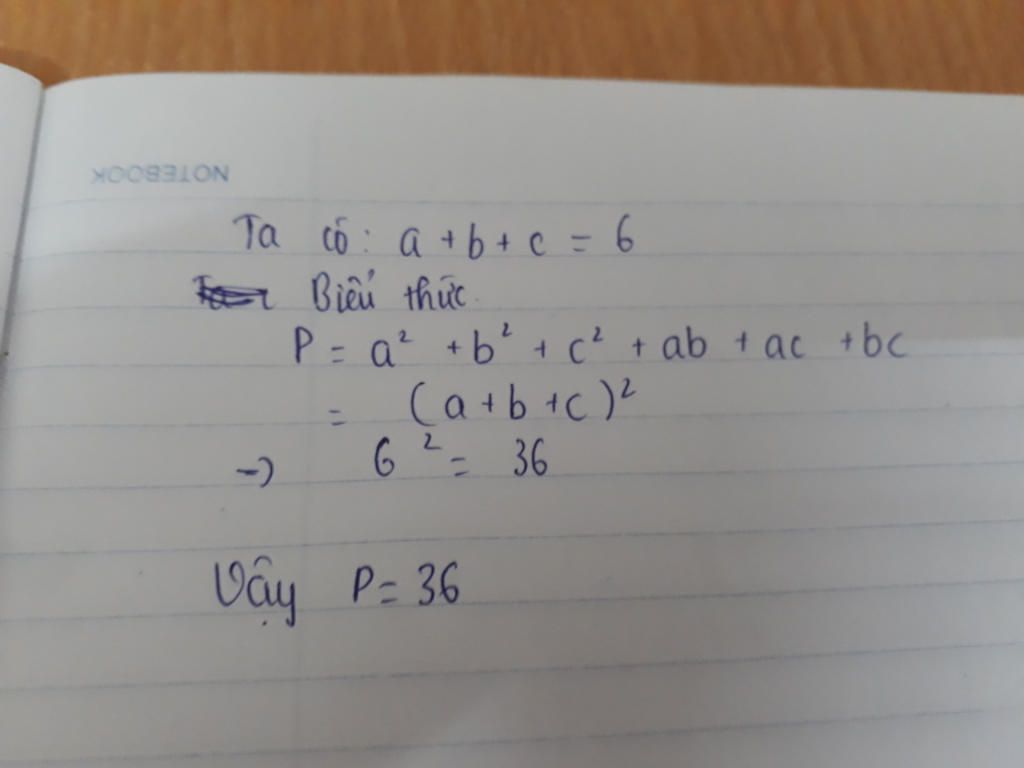 NOTEBOOK
Ta có: a + b + c = 6
Biểu thức.
P = a² + b² + c² + ab + ac + bc
= (a + b + c)²
→ 6² = 36
Vậy P = 36